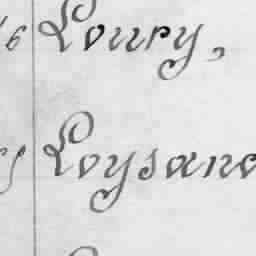 6 Loury,
Loysano